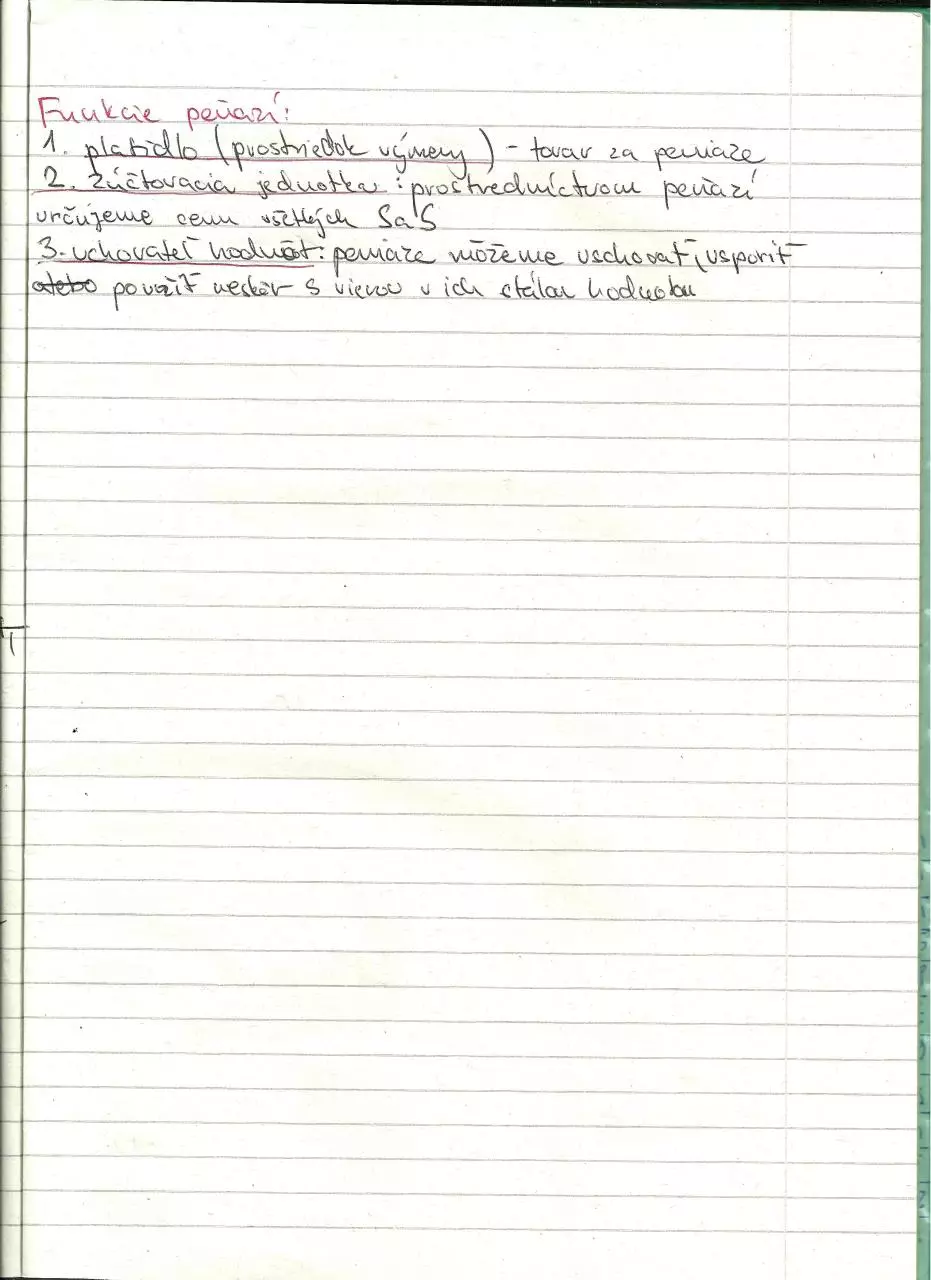 Funkcie peňazí:
1. platidlo (prostriedok výmeny) - tovar za peniaze
2. zúčtovacia jednotka: prostredníctvom peňazí
určujeme cenu všetkých SaS
3. uchovateľ hodnôt: peniaze môžeme uschovať, usporiť
alebo použiť neskôr s vierou v ich stálou hodnotou